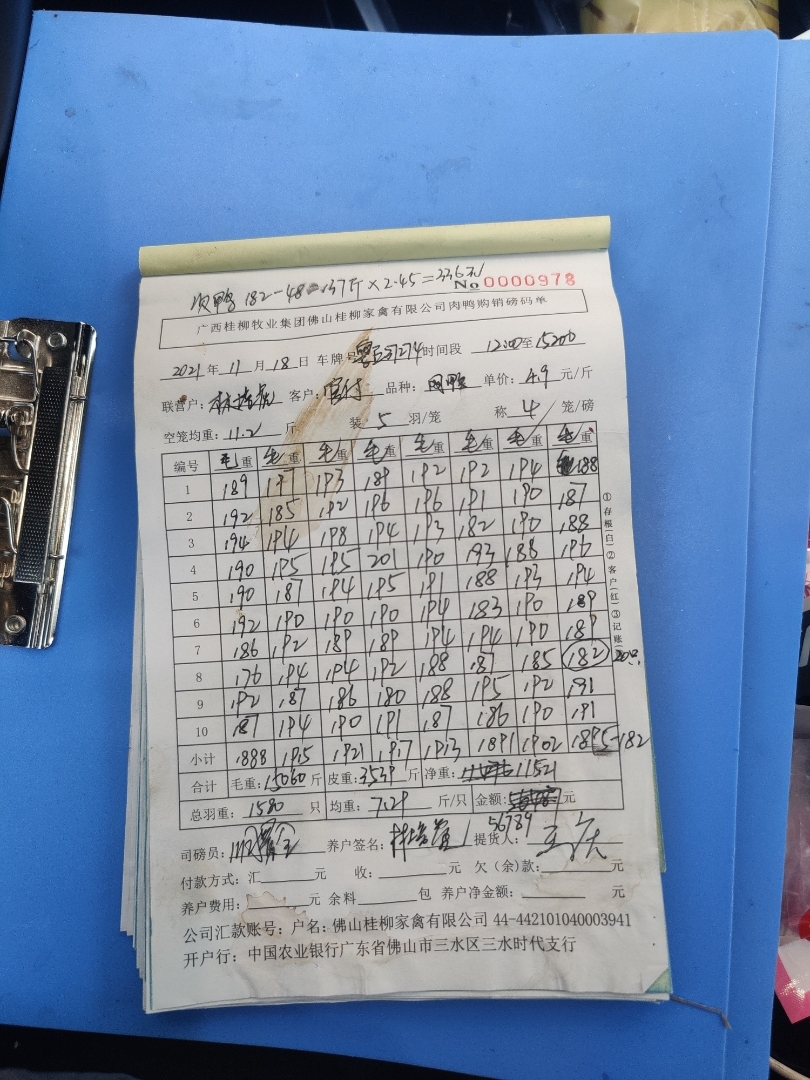 次鸭 182-48 137斤×2.45=336元
No 0000978
广西桂柳牧业集团佛山桂柳家禽有限公司肉鸭购销磅码单
2021年11月18日 车牌号 时间段 12:00至15:00
联营户： 客户： 品种： 单价：4.9元/斤
空笼均重：11.2斤 装：5羽/笼 称4笼/磅
编号 毛重 毛重 毛重 毛重 毛重 毛重 毛重 毛重
1 189 197 193 189 192 192 194 188
2 192 185 192 196 196 191 190 187
3 194 194 198 194 193 182 190 188
4 190 195 195 201 190 193 188 196
5 190 187 194 195 191 188 193 194
6 192 190 190 190 194 183 190 189
7 186 192 189 189 194 194 190 189
8 176 194 194 192 188 187 185 182 20只
9 192 187 186 180 188 195 192 191
10 187 194 190 191 187 186 190 191
小计 1888 1915 1921 1917 1913 1891 1902 1895-182
合计 毛重：15060斤 皮重：3539斤 净重：11521
总羽重：1580只 均重：7.29斤/只 金额：元
56789
司磅员： 养户签名： 提货人：
付款方式：汇 元 收： 元 欠（余）款： 元
养户费用： 元 余料 包 养户净金额： 元
公司汇款账号：户名：佛山桂柳家禽有限公司 44-442101040003941
开户行：中国农业银行广东省佛山市三水区三水时代支行
①存根(白)②客户(红)③记账